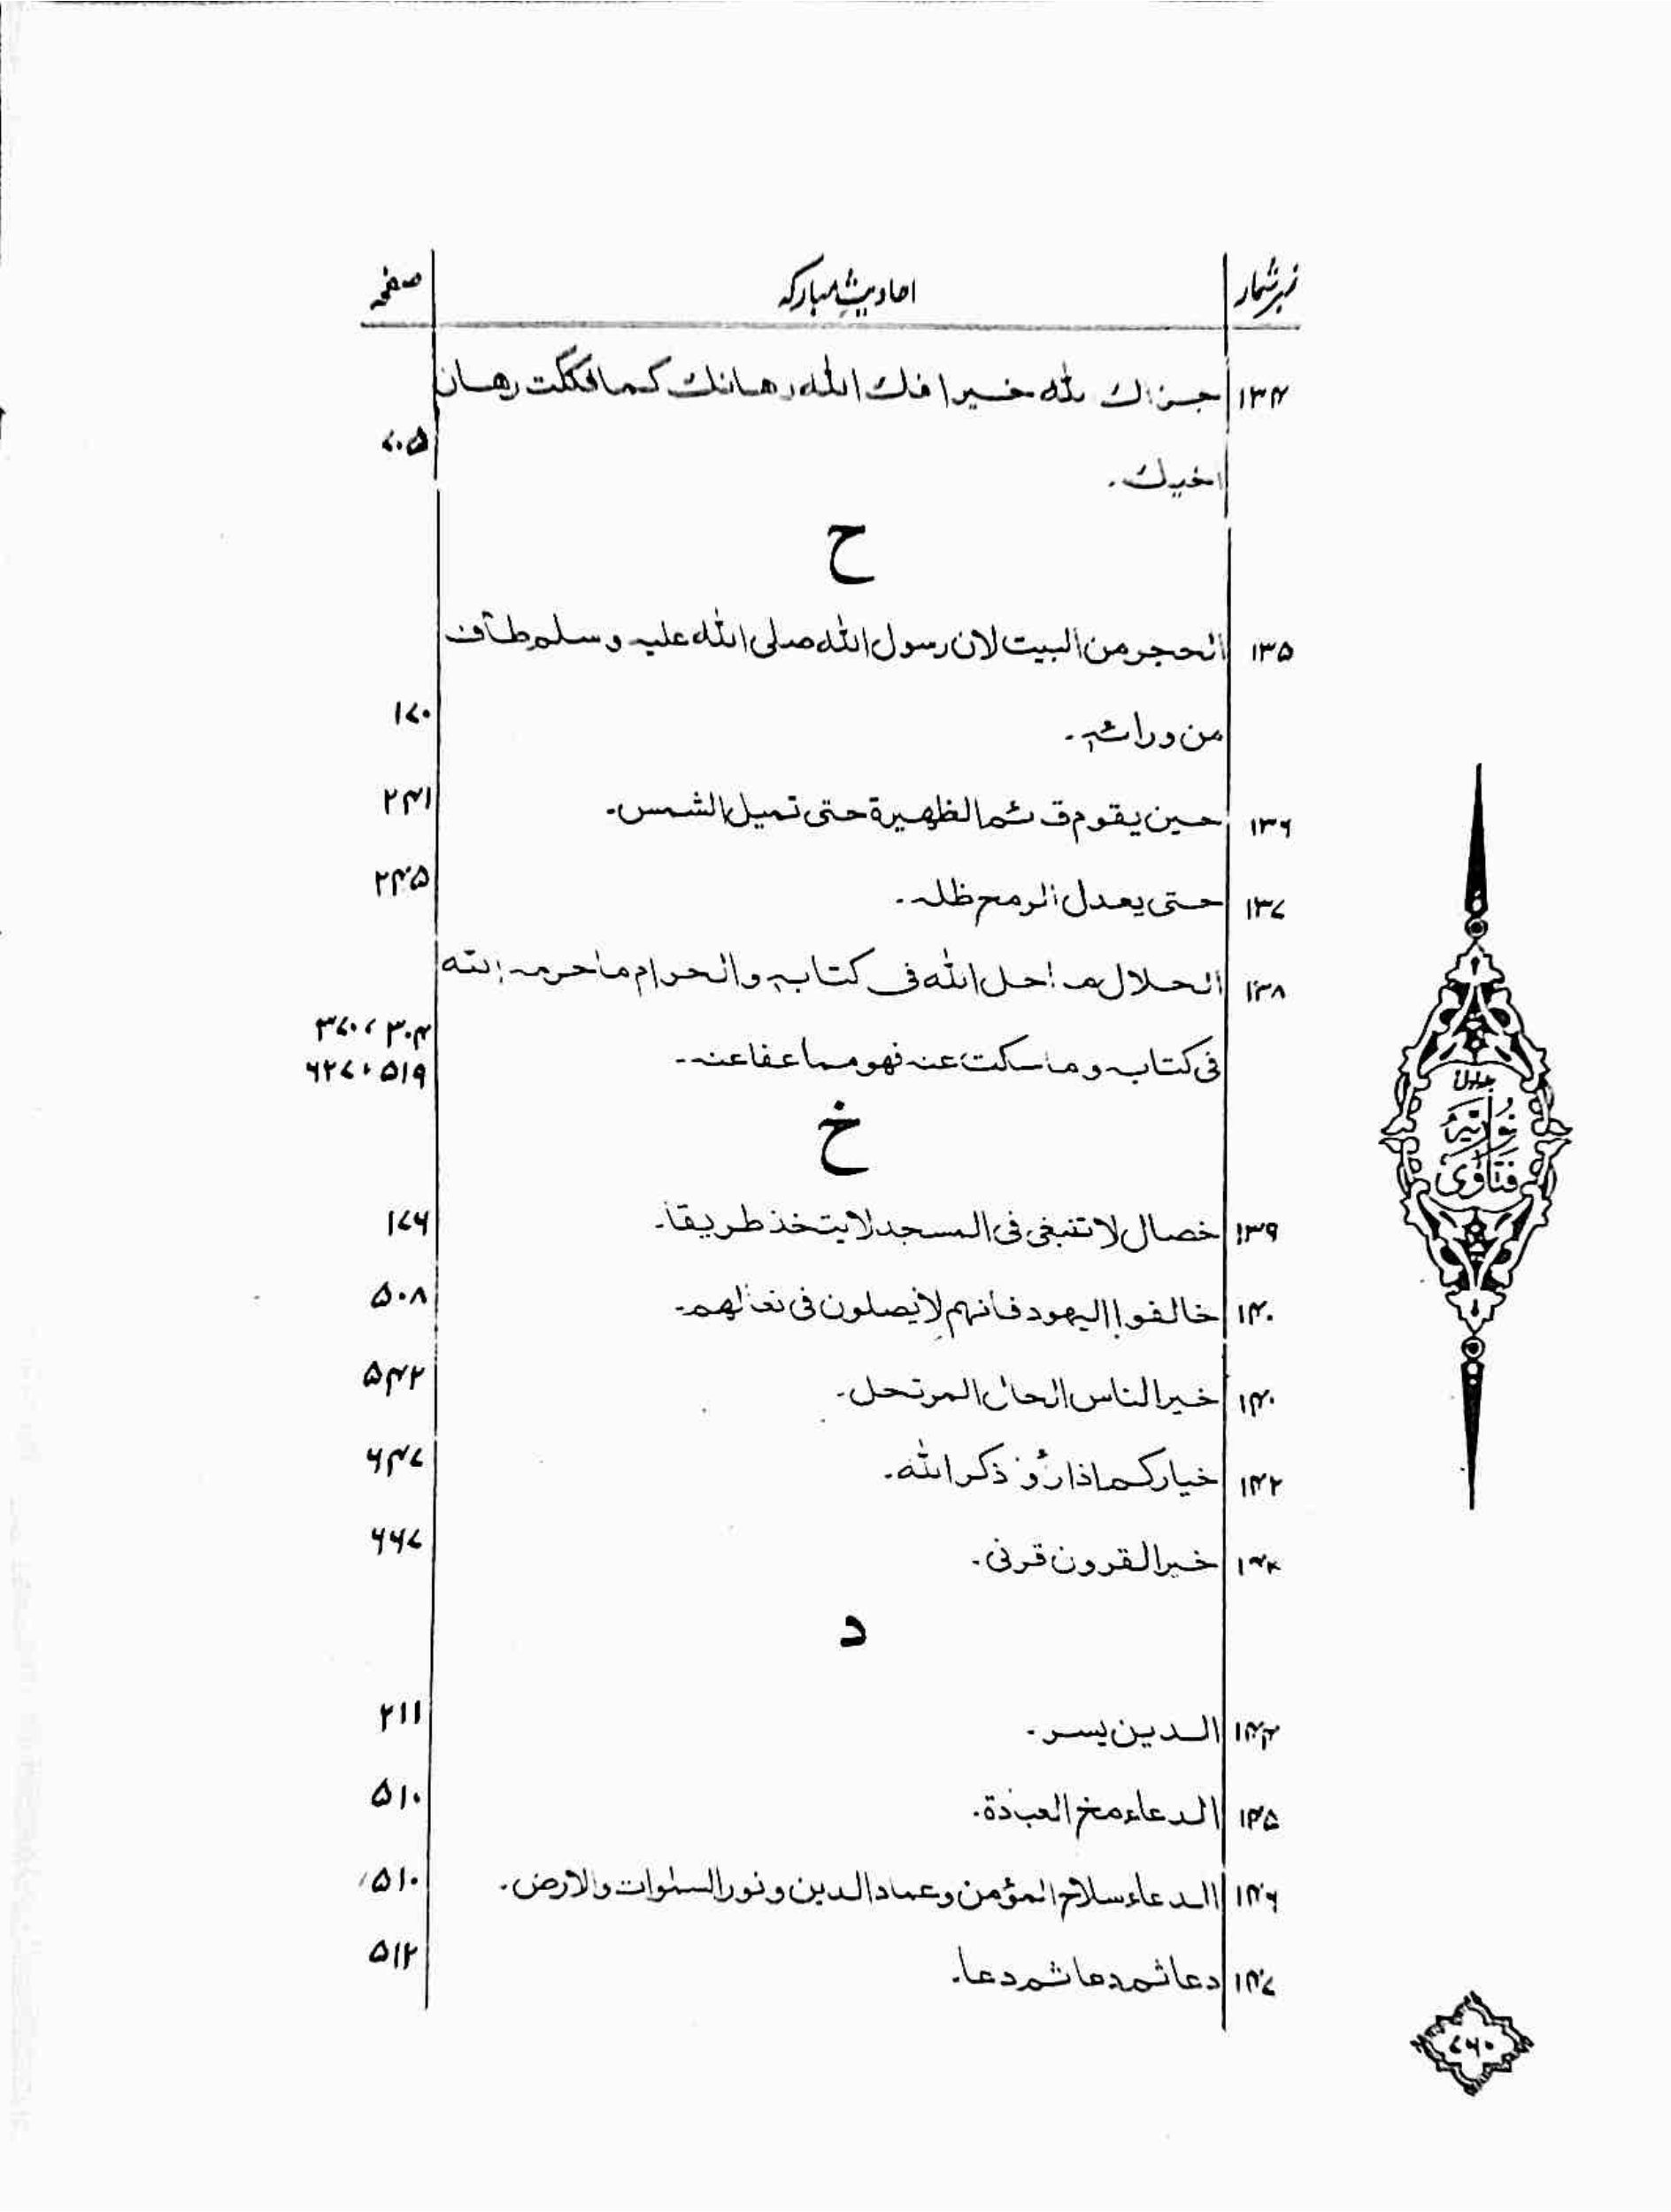 نمبر شمار احادیث مبارکہ صفحہ
۱۳۴ جزاك الله خيرا فك الله رهانك كما فككت رهان
اخيك۔ ۷۰۵
ح
۱۳۵ الحجر من البيت لان رسول الله صلى الله عليه وسلم طاف
من ورائه۔ ۱۷۰
۱۳۶ حين يقوم قائم الظهيرة حتى تميل الشمس۔ ۲۴۱
۱۳۷ حتى يعدل الرمح ظله۔ ۲۴۵
۱۳۸ الحلال ما احل الله فى كتابه والحرام ما حرمه الله
۳۰۴، ۳۷۰
فى كتابه وما سكت عنه فهو مما عفا عنه۔ ۵۱۹، ۶۲۷
خ
۱۳۹ خصال لا تنبغى فى المسجد لا يتخذ طريقا۔ ۱۷۶
۱۴۰ خالفوا اليهود فانهم لا يصلون فى نعالهم۔ ۵۰۸
۱۴۰ خير الناس الحال المرتحل۔ ۵۴۲
۱۴۲ خياركم اذا رؤا ذكر الله۔ ۶۴۷
۱۴۳ خير القرون قرنى۔ ۶۶۷
د
۱۴۴ الدين يسر۔ ۲۱۱
۱۴۵ الدعاء مخ العبادة۔ ۵۱۰
۱۴۶ الدعاء سلاح المؤمن وعماد الدين ونور السموات والارض۔ ۵۱۰
۱۴۷ دعا ثم دعا ثم دعا۔ ۵۱۲
جلد اول
نوریہ
فتاوی
۷۶۰